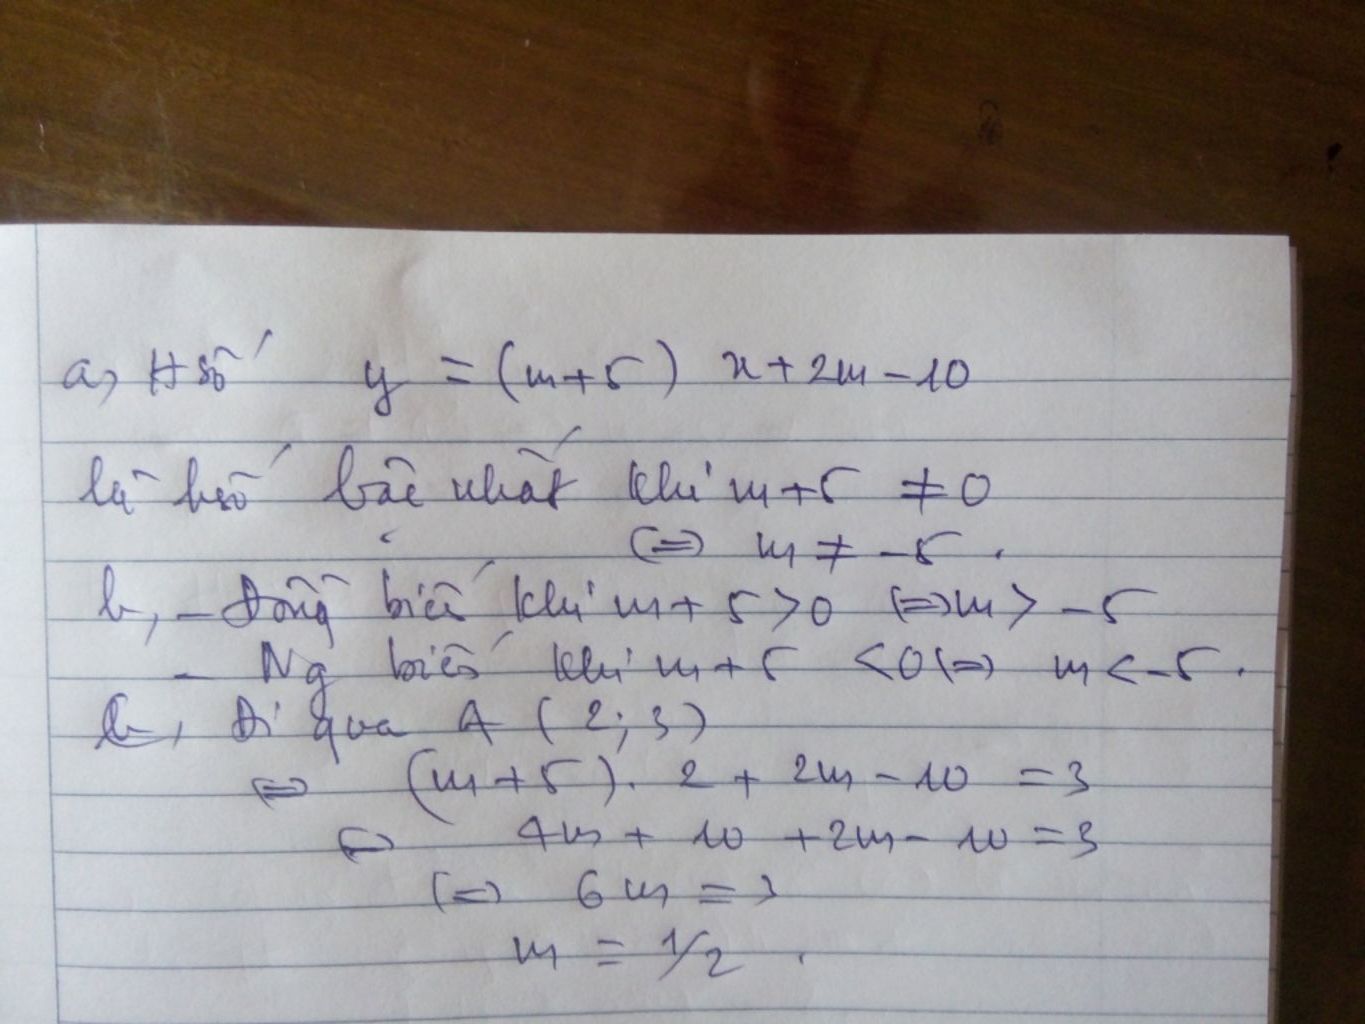 a, H số y = (m+5) x + 2m - 10
là hsố bậc nhất khi m+5 ≠ 0
(=) m ≠ -5.
b, - Đồng biến khi m + 5 > 0 (=) m > -5
- Ng biến khi m + 5 < 0 (=) m < -5.
c, Đi qua A (2; 3)
(=) (m+5). 2 + 2m - 10 = 3
(=) 4m + 10 + 2m - 10 = 3
(=) 6m = 3
m = 1/2.